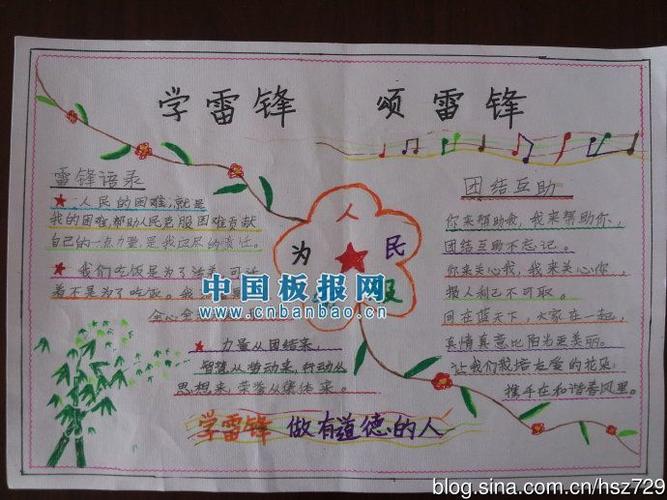 学雷锋 颂雷锋
雷锋语录
★ 人民的困难,就是
我的困难,帮助人民克服困难贡献
自己的一点力量,是我应尽的责任。
★ 我们吃饭是为了活着,可
着不是为了吃饭。我
全心全
★ 力量从团结来,
智慧从劳动来,行动从
思想来,荣誉从集体来。
为 人 民
中国板报网
www.cnbanbao.cn
团结互助
你来帮助我,我来帮助你,
团结互助不忘记。
你来关心我,我来关心你,
损人利己不可取。
同在蓝天下,大家在一起,
真情真意比阳光更美丽。
让我们栽培友爱的花朵,
携手在和谐春风里。
学雷锋 做有道德的人
blog.sina.com.cn/hsz729